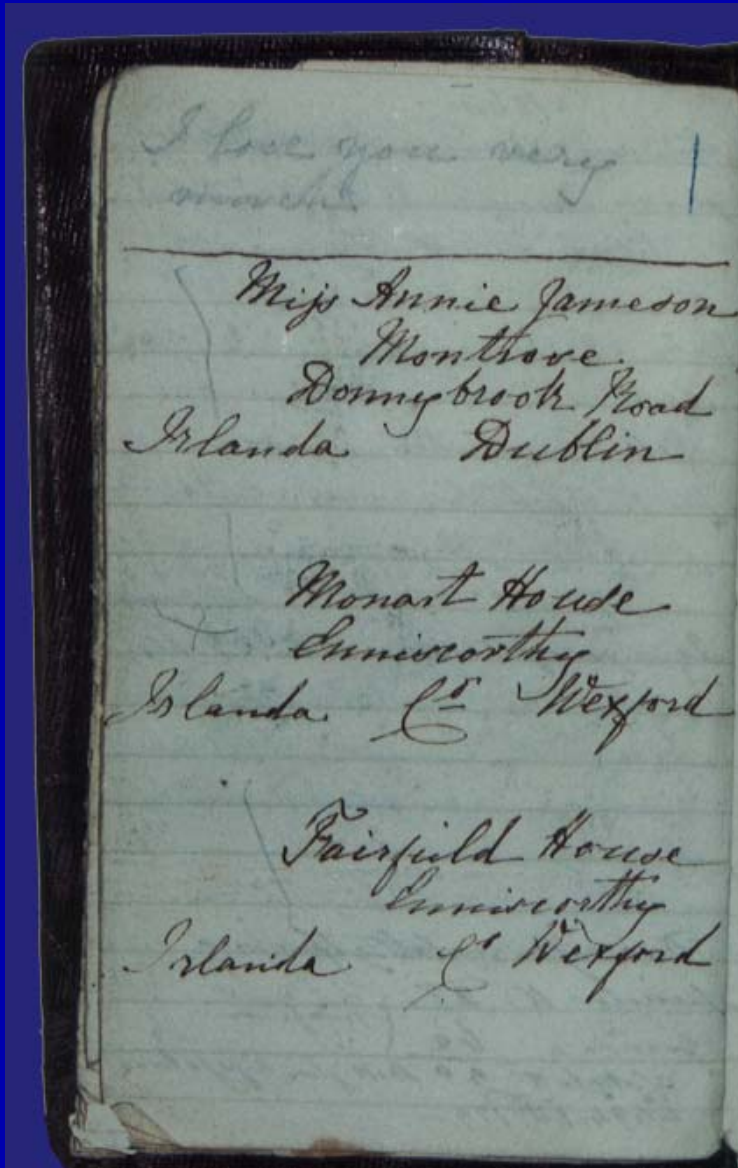 I love you very
much
Miss Annie Jameson
Montrove
Donnybrook Road
Irlanda Dublin
Monart House
Enniscorthy
Irlanda Co Wexford
Fairfield House
Enniscorthy
Irlanda Co Wexford